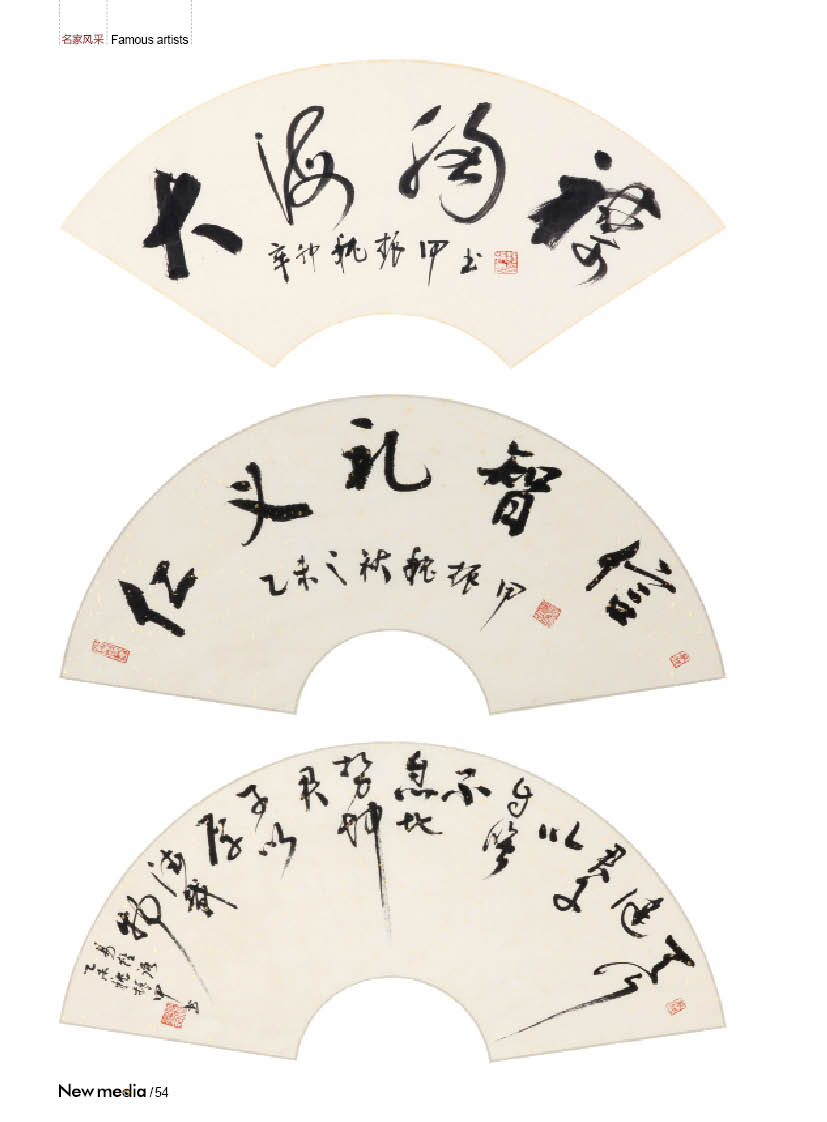 名家风采 Famous artists
大海胸襟
辛卯魏振甲书
仁义礼智信
乙未之秋魏振甲
天行健君子以自强不息地势坤君子以厚德载物
乙未魏振甲书
New media /54